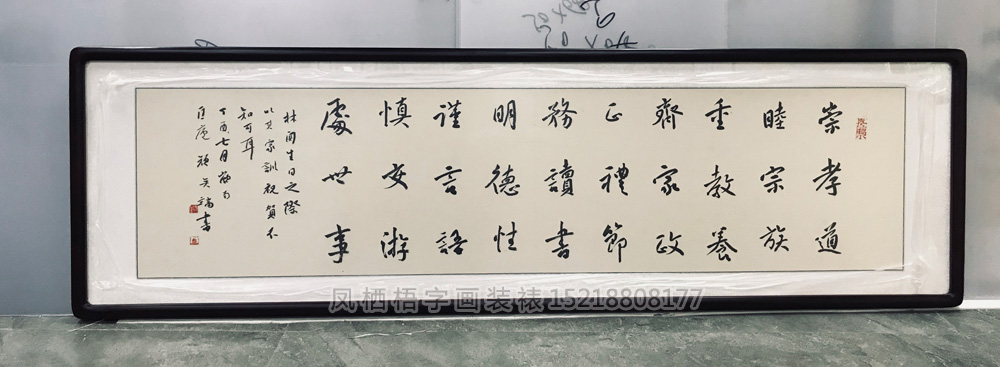 崇孝道
睦宗族
重教養
齊家政
正禮節
務讀書
明德性
謹言語
慎交游
處世事
林闻生日之際
以其家訓祝賀不
知可耳
丁酉七月
书
凤栖梧字画装裱15218808177